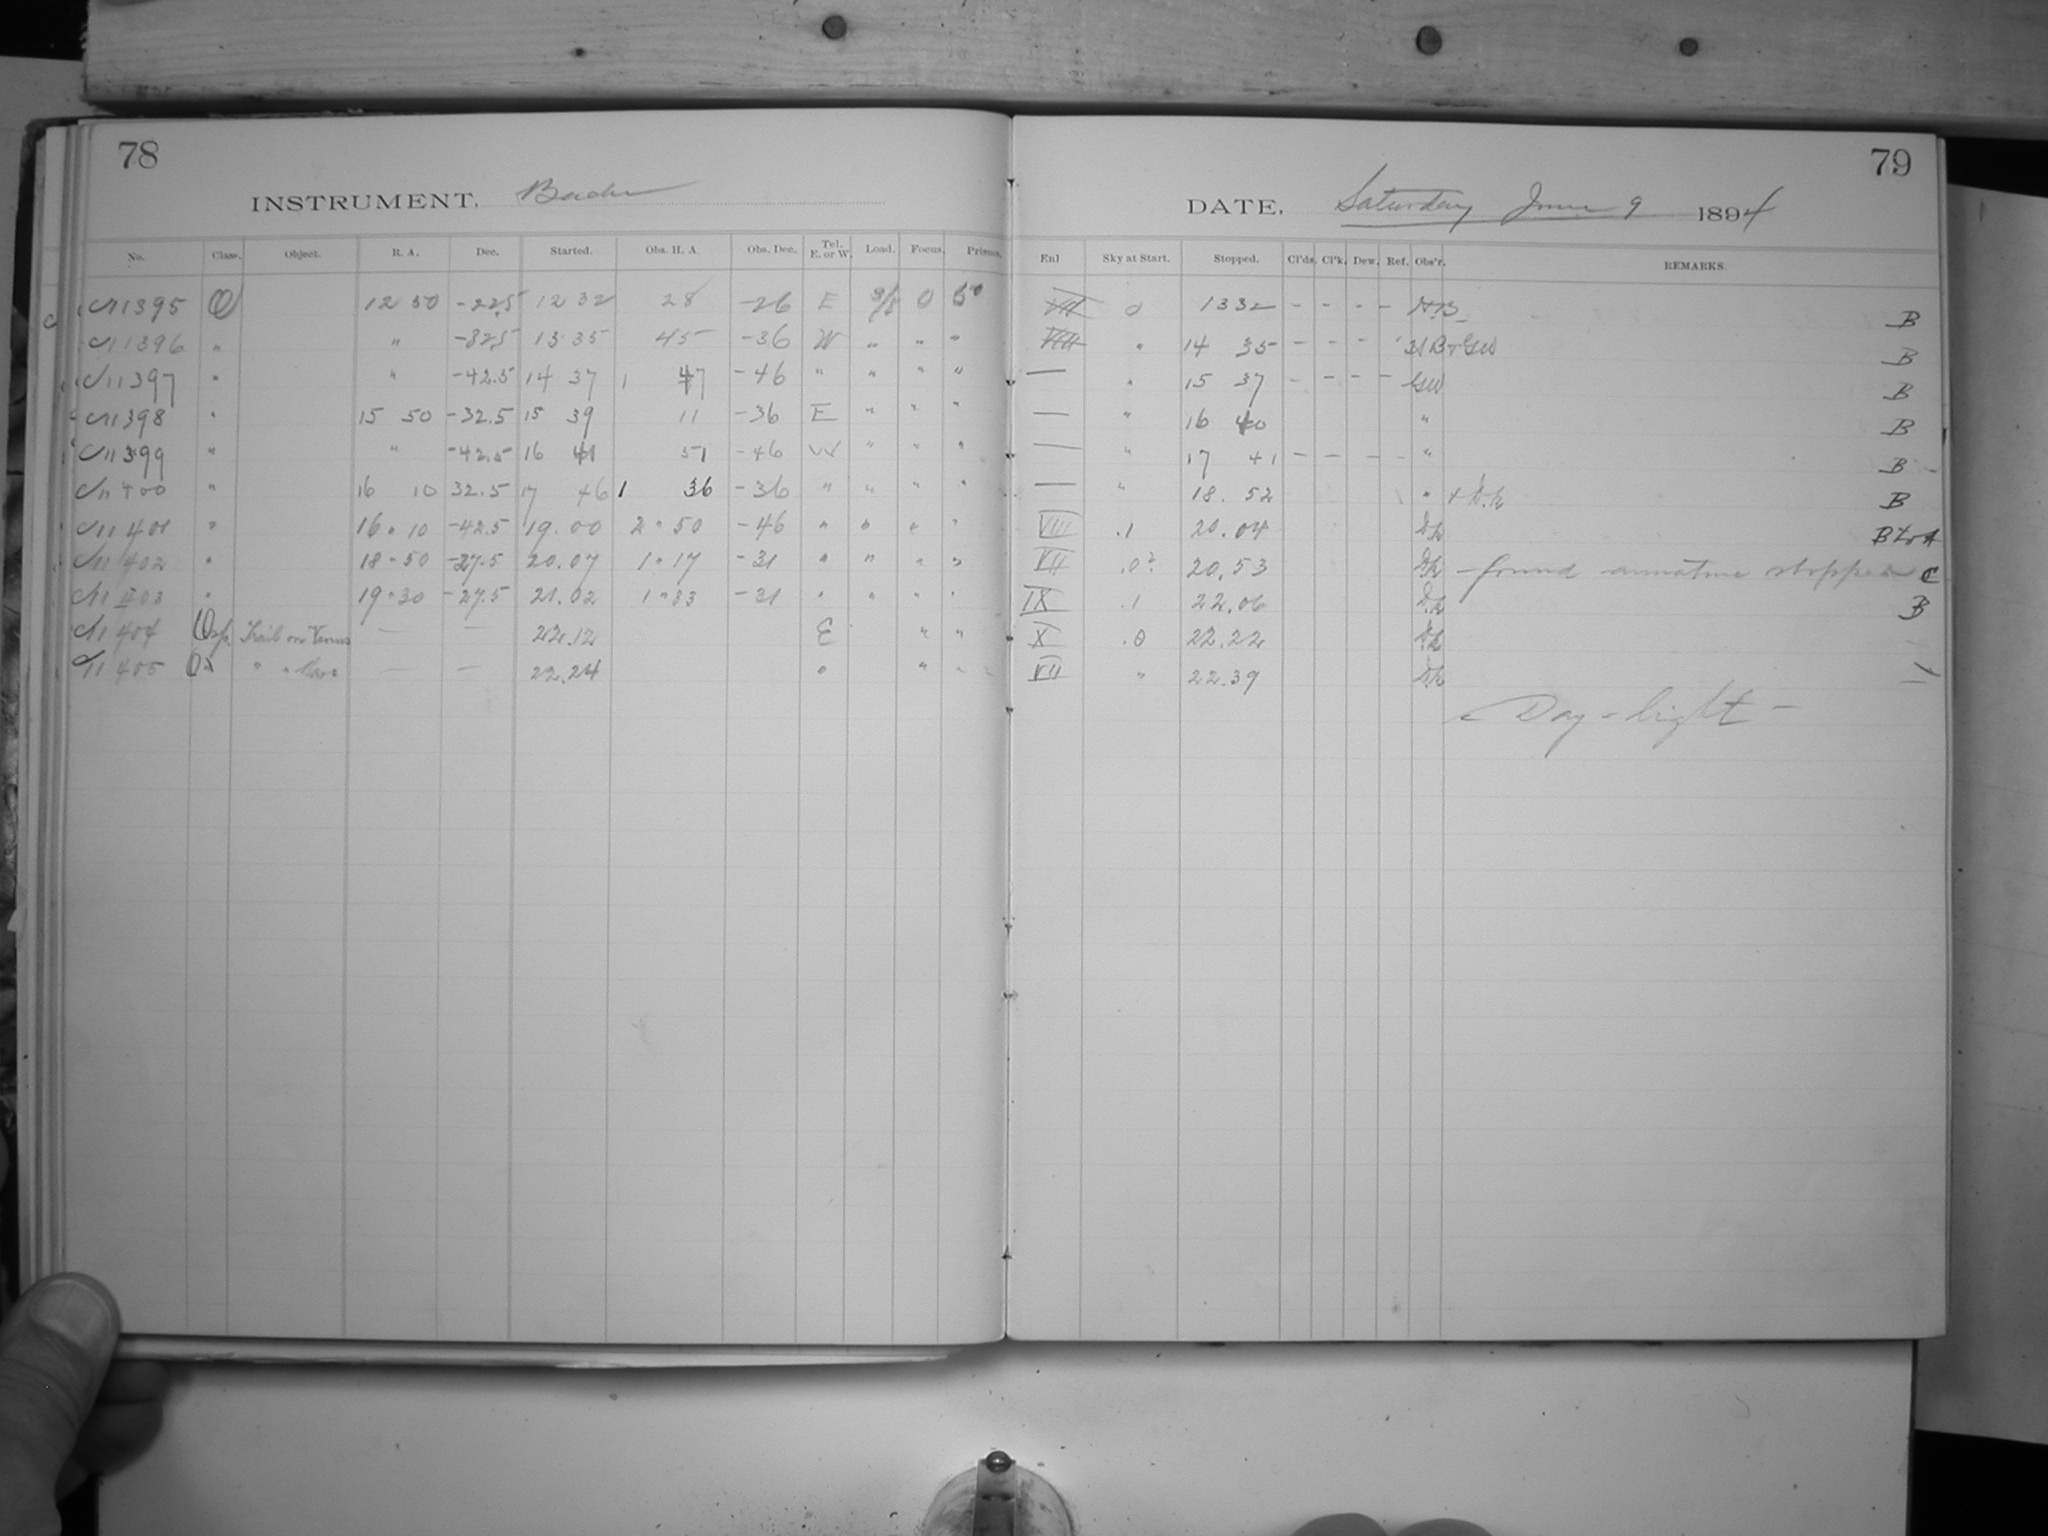 78
INSTRUMENT, Bache
No. Class. Object. R. A. Dec. Started. Obs. H. A. Obs. Dec. Tel. E. or W. Load. Focus. Prisms.
11395 O 12 50 -22.5 12 32 28 -26 E 3/8 0
11396 " " -32.5 13 35 45 -36 W " " "
11397 " " -42.5 14 37 1 47 -46 " " " "
11398 " 15 50 -32.5 15 39 11 -36 E " " "
11399 " " -42.5 16 41 51 -46 W " " "
11400 " 16 10 32.5 17 46 1 36 -36 " " " "
11401 " 16 10 -42.5 19.00 2 50 -46 " " " "
11402 " 18 50 -27.5 20.07 1 17 -31 " " " "
11403 " 19 30 -27.5 21.02 1 33 -31 " " " "
11404 Trail on Venus — — 22.12 E " "
11405 " " — — 22.24 " " "
79
DATE, Saturday June 9 1894
Enl Sky at Start. Stopped. Cl'ds. Cl'k. Dew. Ref. Obs'r. REMARKS.
VII 0 13 32 - - - - B
VIII " 14 35 - - - B
— " 15 37 - - - - GW B
— " 16 40 " B
— " 17 41 - - - - " B -
— " 18. 52 " B
VIII .1 20.04 B to A
VII .0? 20.53 - found armature stopped C
IX .1 22.06 B
X .0 22.22
VII " 22.39
Day-light -